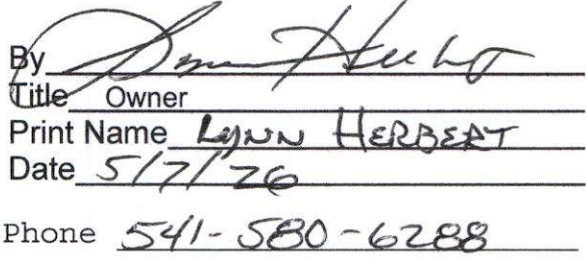 By Lynn Herbert
Title Owner
Print Name LYNN HERBERT
Date 5/7/26
Phone 541-580-6288